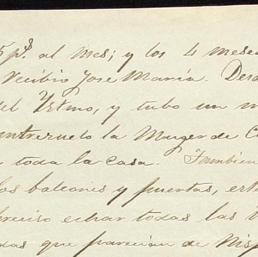 5 p.s al mes; y los 4 mese
Recibio Jose Maria. Des
del Ystmo, y tubo un m
entresuelo la Muger de C
toda la casa. Tambien
los balcones y puertas, est
preciso echar todas las
que parecian de Nis